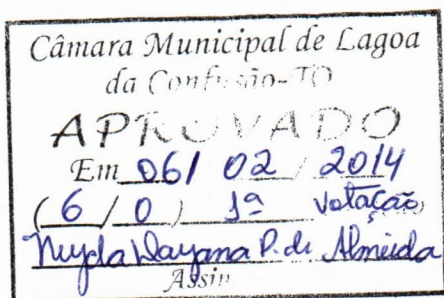 Câmara Municipal de Lagoa
da Confusão-TO
APROVADO
Em 06/ 02 / 2014
( 6 / 0 ) 1ª Votação
Dayana P. de Almeida
Assin